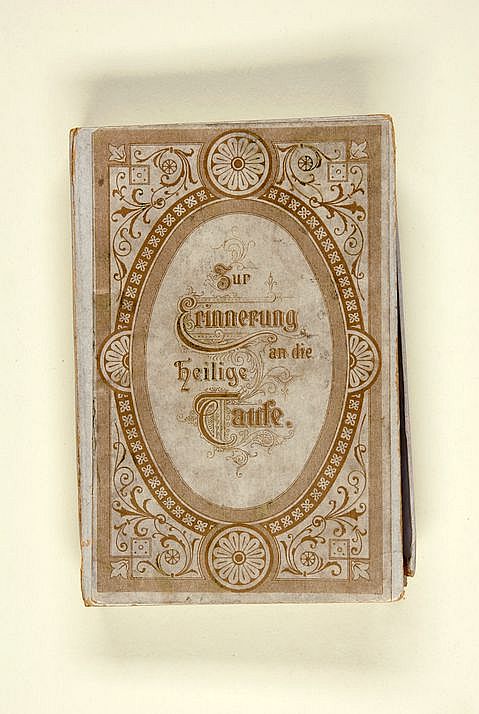 Zur
Erinnerung
an die
heilige
Taufe.